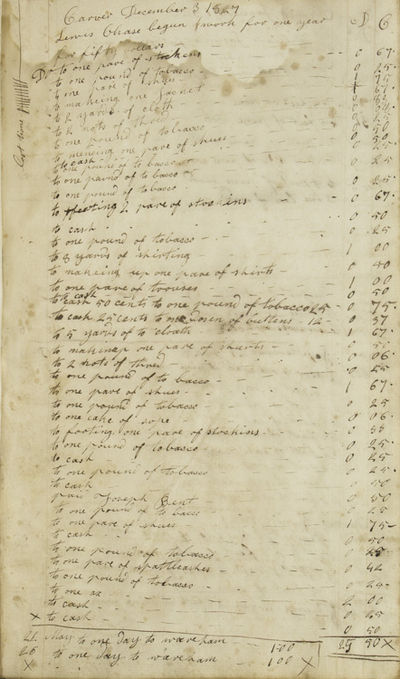 Carver December 3 1827
Lewis Chase begun f work for one year
for fifty dollars D C
Dr to one pare of stockens 0 67
to one pound of tobacco
to one pare of shues
to makeing one Jacket
to 2 yards of cloth
to 2 nots of thred
to one pound of tobacco
to mending one pare of shues
to cash
to one pound of tobacco 0 25
to one pound of tobacco
to one pound of tobacco 0 25
to footing 2 pare of stockins 0 67
to cash 0 50
to one pound of tobacco 0 25
to 8 yards of shirting 1 00
to makeing up one pare of shirts 0 50
to one pare of trouses 1 00
to cash 0 50
to cash 50 cents to one pound of tobacco 25 0 75
to cash 25 cents to one dosen of buttens 12 0 37
to 5 yards of to cloath 1 67
to makeing one pare of shurts
to 2 nots of thred 0 06
to one pound of to bacco 0 25
to one pare of shues 1 67
to one pound of tobacco 0 25
to one cake of sope 0 06
to footing one pare of stockins 0 38
to one pound of tobacco 0 25
to cash 0 25
to one pound of tobacco 0 25
to cash 0 50
paid Joseph Bent 0 50
to one pound of to bacco 0 25
to one pare of shues 1 75
to cash 0 50
to one pound of tobacco 25
to one pare of spattleashes 0 42
to one pound of tobacco 0 25
to one ax 2 00
to cash 0 65
x to cash 0 50
21 May to one Day to wareham 1 00 25 50 X
26 to one day to wareham 1 00 X
X
Lost time